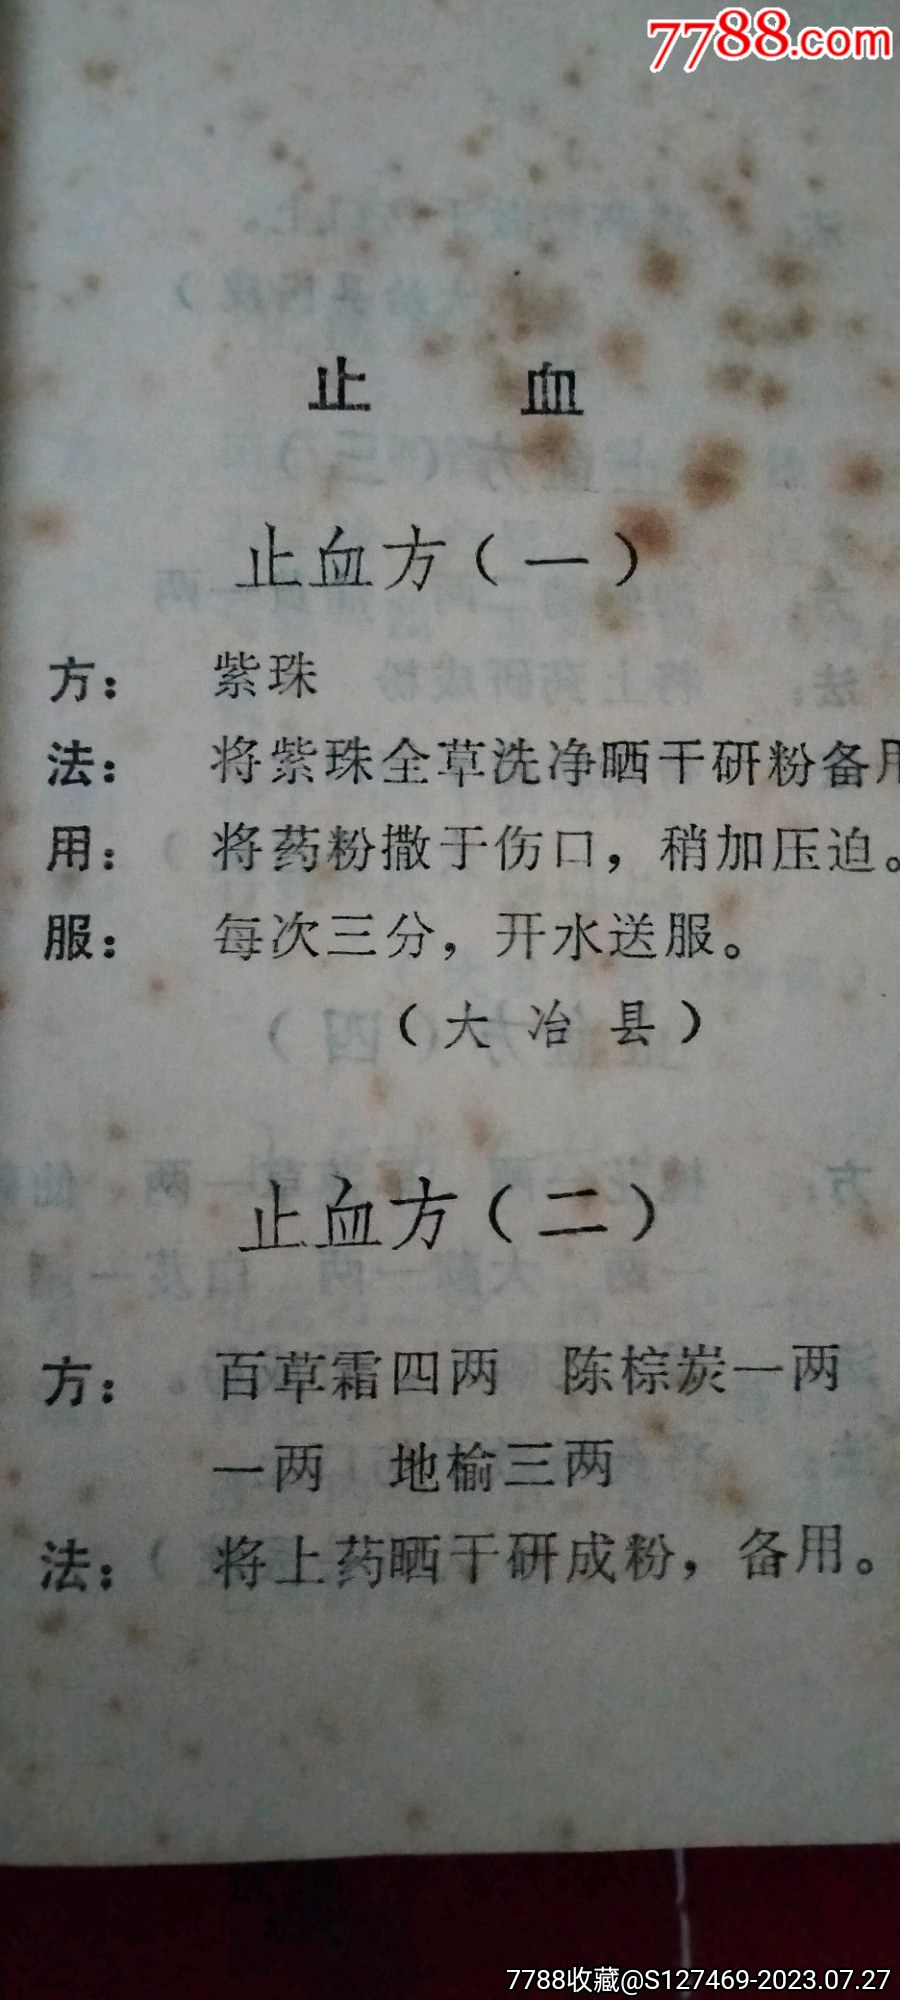 7788.com
止 血
止血方（一）
方： 紫珠
法： 将紫珠全草洗净晒干研粉备用
用： 将药粉撒于伤口，稍加压迫。
服： 每次三分，开水送服。
（大冶县）
止血方（二）
方： 百草霜四两 陈棕炭一两
一两 地榆三两
法： 将上药晒干研成粉，备用。
7788收藏@S127469-2023.07.27